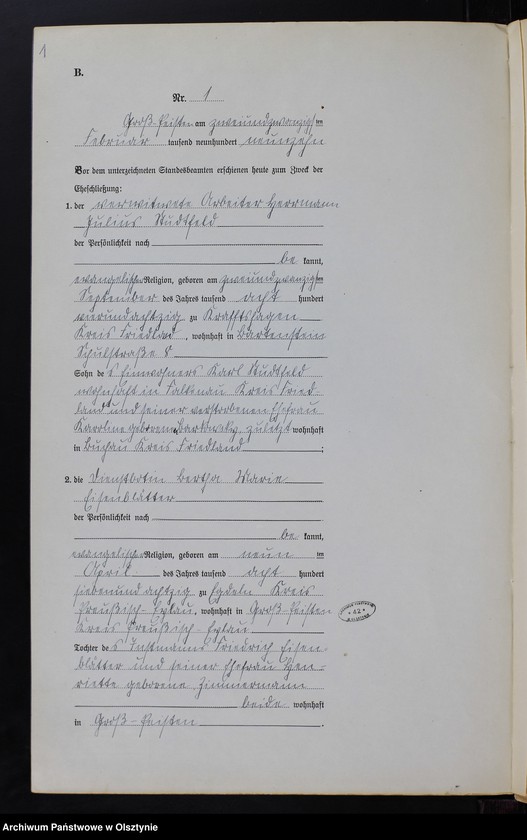 1
B.
Nr. 1
Groß-Peisten am zweiundzwanzigsten
Februar tausend neunhundert neunzehn
Vor dem unterzeichneten Standesbeamten erschienen heute zum Zweck der
Eheschließung:
1. der verwitwete Arbeiter Herrmann
Julius Studtfeld
der Persönlichkeit nach
be kannt,
evangelischer Religion, geboren am zweiundzwanzigsten
September des Jahres tausend acht hundert
vierundachtzig zu Krafftshagen
Kreis Friedland, wohnhaft in Bartenstein
Schulstraße 8
Sohn des Einwohners Karl Studtfeld
wohnhaft in Falkenau Kreis Fried-
land und seiner verstorbenen Ehefrau
Karoline geborene zuletzt wohnhaft
in Buchau Kreis Friedland ;
2. die Dienstbotin Bertha Marie
Eisenblätter
der Persönlichkeit nach
be kannt,
evangelischer Religion, geboren am neun ten
April des Jahres tausend acht hundert
siebenundachtzig zu Egdeln Kreis
Preußisch-Eylau, wohnhaft in Groß-Peisten
Kreis Preußisch-Eylau
Tochter des Instmanns Friedrich Eisen-
blätter und seiner Ehefrau Hen-
riette geborene Zimmermann
beide wohnhaft
in Groß-Peisten .
* 42 *
Archiwum Państwowe w Olsztynie